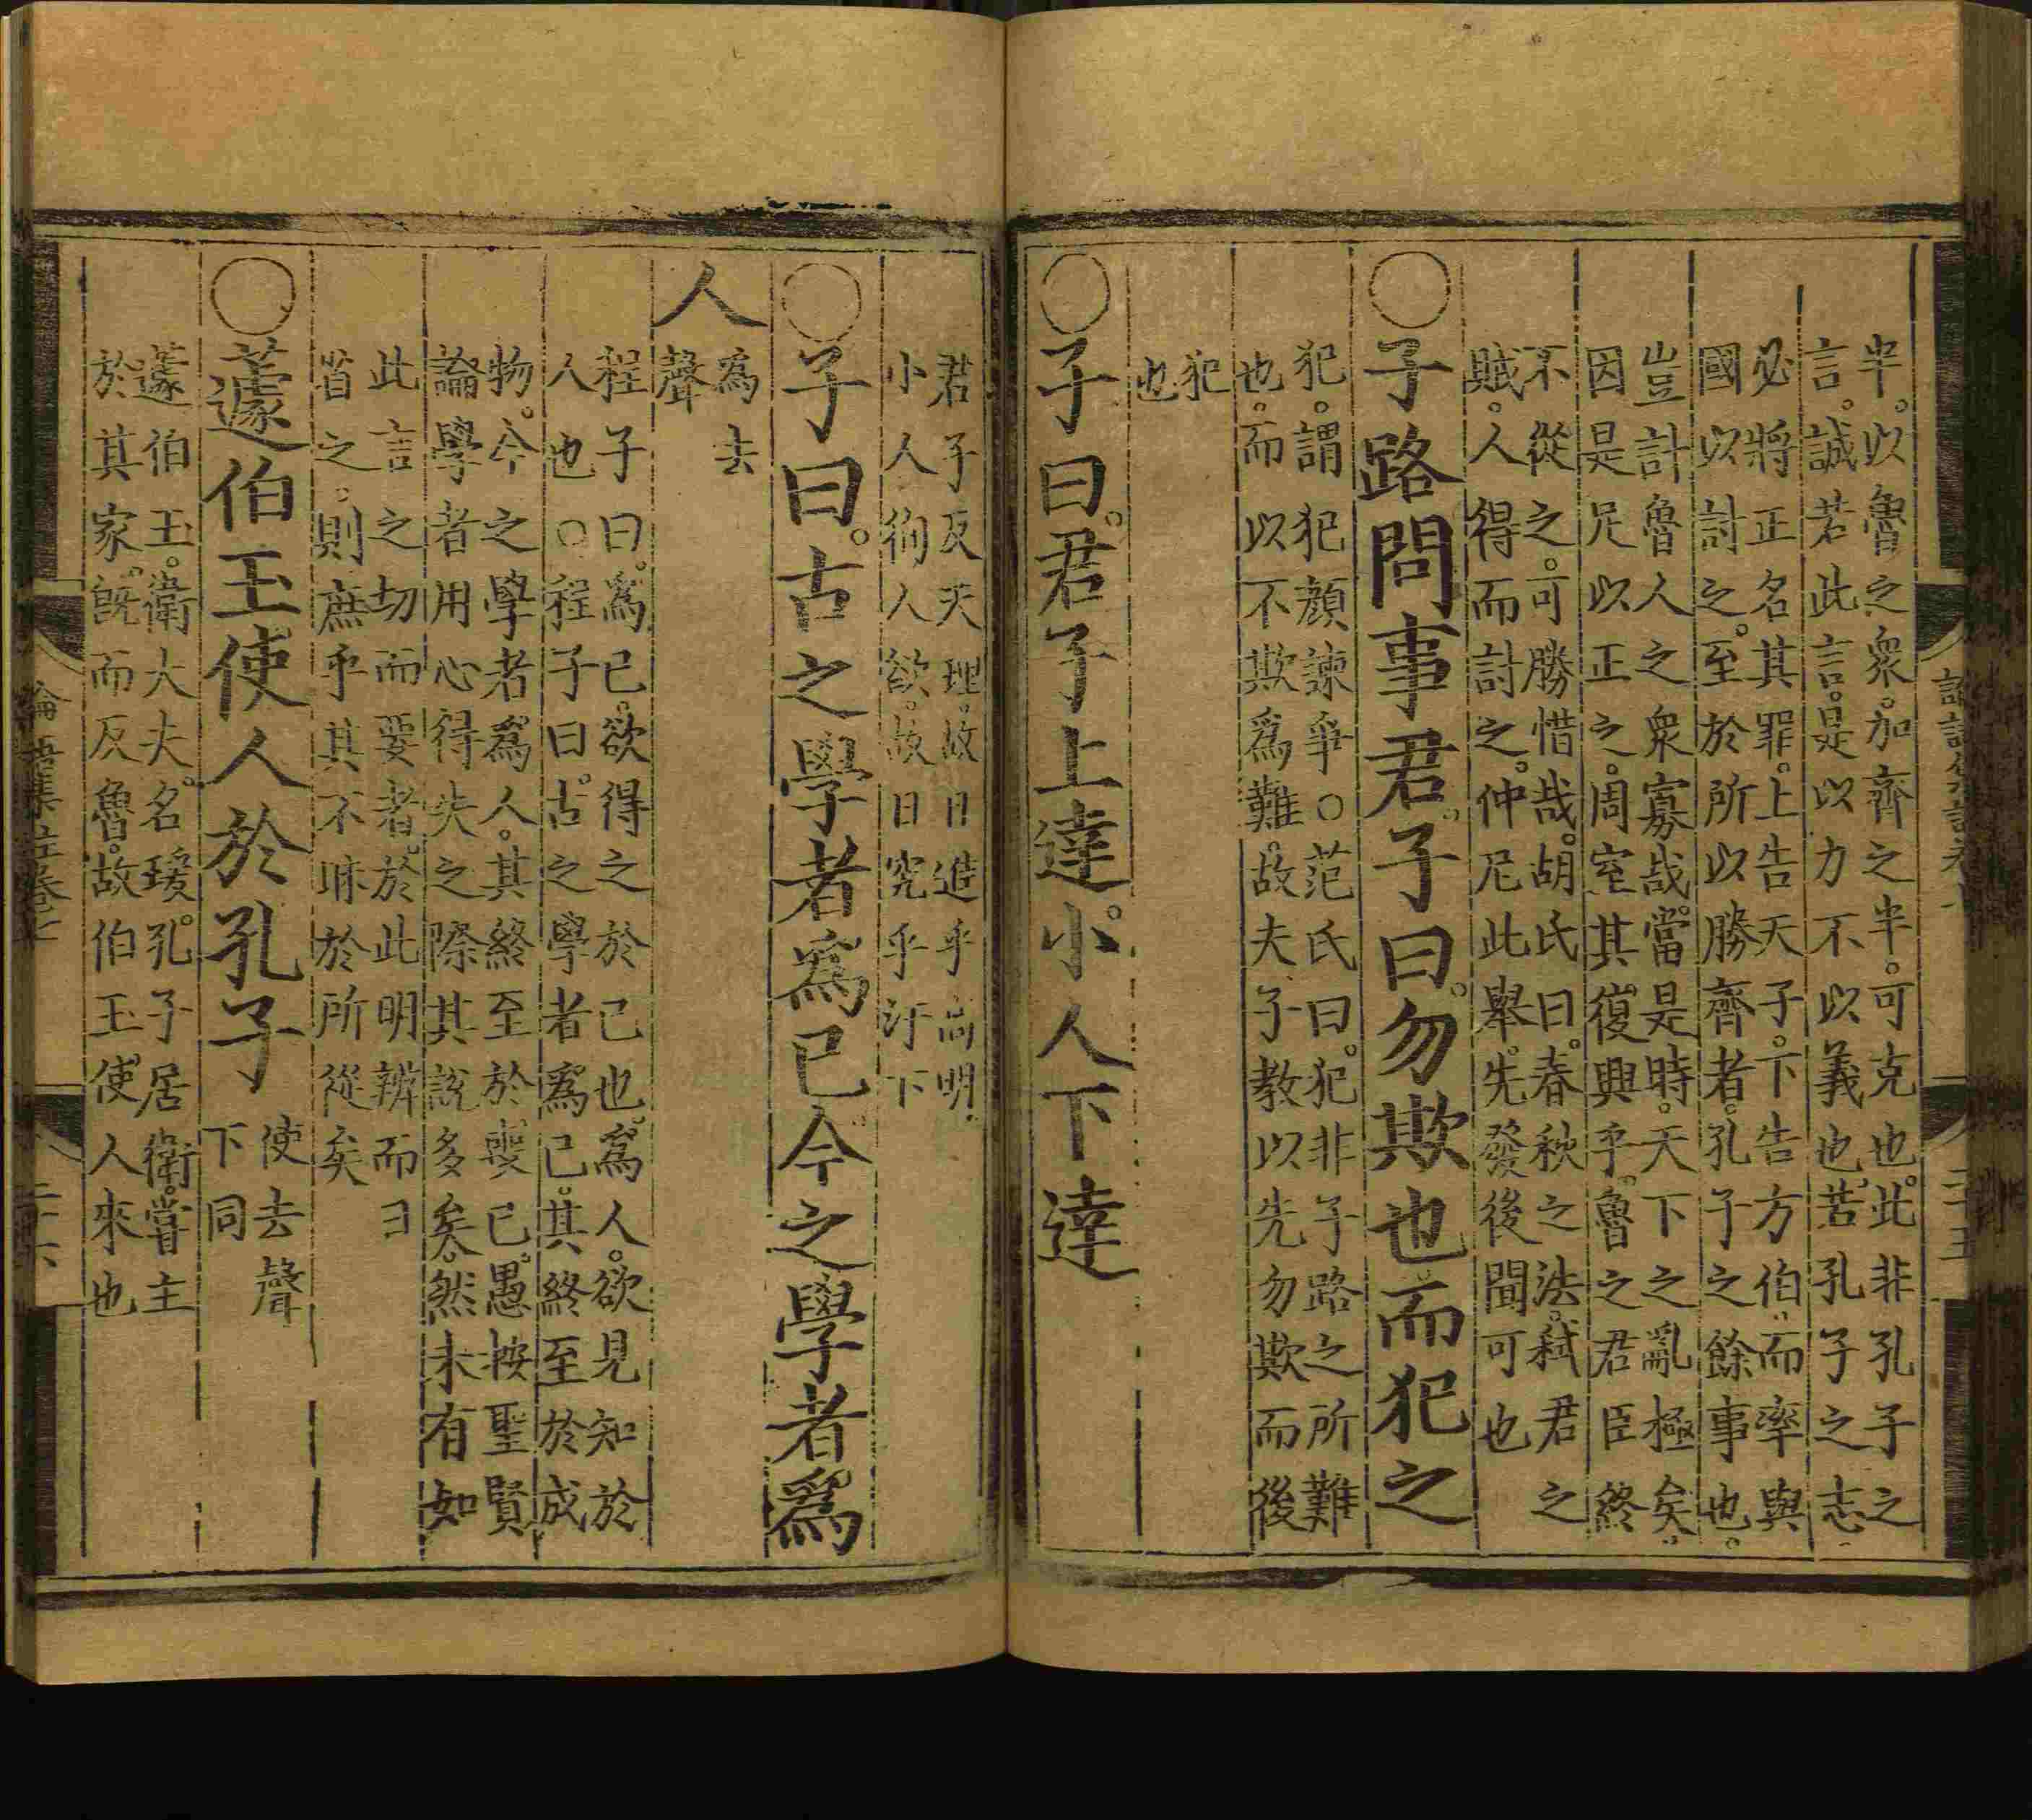 半。以魯之衆。加齊之半。可克也。此非孔子之
言。誠若此言。是以力不以義也。若孔子之志
必將正名其罪。上告天子。下告方伯。而率與
國以討之。至於所以勝齊者。孔子之餘事也。
豈計魯人之衆寡哉。當是時。天下之亂極矣。
因是足以正之。周室其復興乎。魯之君臣終
不從之。可勝惜哉。胡氏曰。春秋之法。弑君之
賊。人得而討之。仲尼此舉。先發後聞可也
○子路問事君。子曰。勿欺也而犯之
犯。謂犯顔諫爭○范氏曰。犯非子路之所難
也。而以不欺爲難。故夫子教以先勿欺而後
犯
也
○子曰。君子上達。小人下達
君子反天理。故日進乎高明
小人徇人欲。故日究乎汙下
○子曰。古之學者爲己今之學者爲
人
爲去
聲
程子曰。爲己。欲得之於己也。爲人。欲見知於
人也○程子曰。古之學者爲己。其終至於成
物。今之學者爲人。其終至於喪己。愚按聖賢
論學者用心得失之際其說多矣。然未有如
此言之切而要者。於此明辨而日
省之。則庶乎其不昧於所從矣
○蘧伯玉使人於孔子
使去聲
下同
蘧伯玉。衛大夫。名瑗。孔子居衛。嘗主
於其家。既而反魯。故伯玉使人來也
論語集註卷七